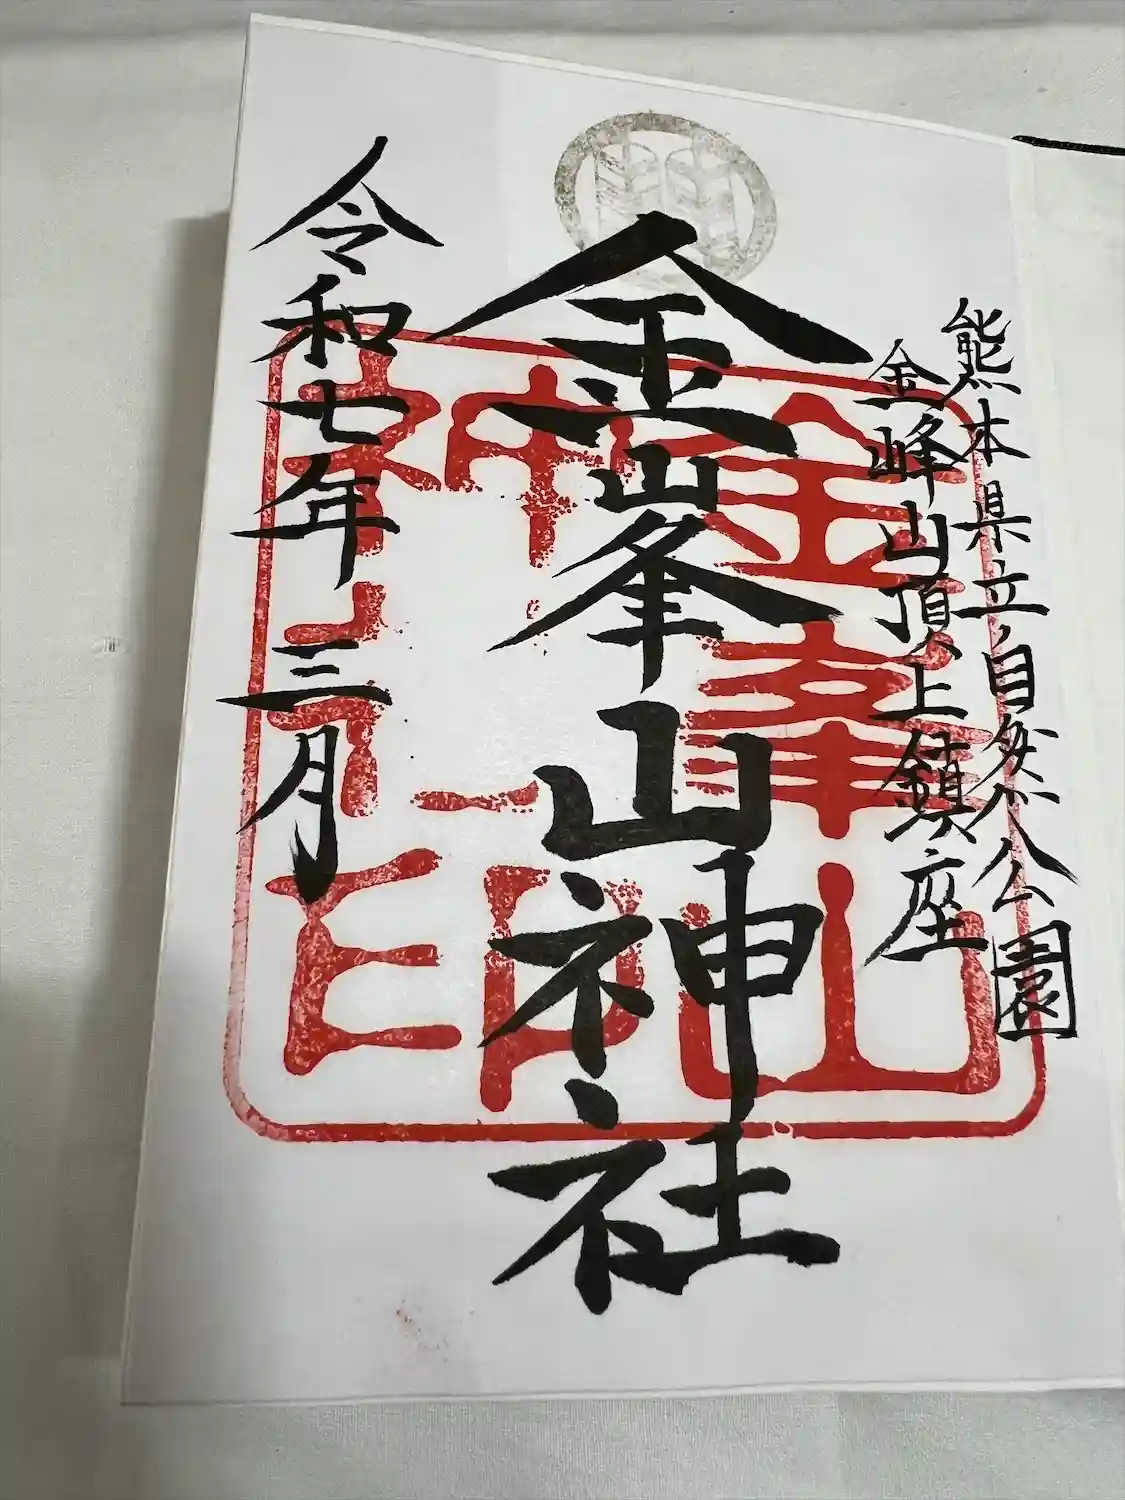 熊本県立自然公園
金峰山頂上鎮座
金峯山神社
令和七年三月
金峯山
神社
印